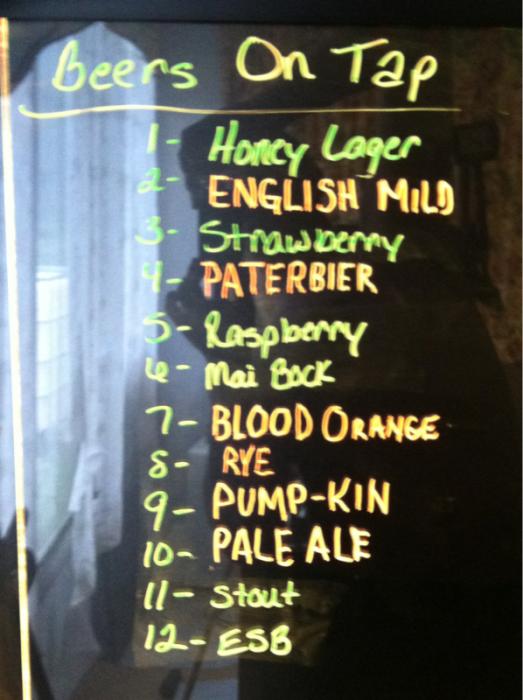 Beers On Tap
1- Honey Lager
2- ENGLISH MILD
3- Strawberry
4- PATERBIER
5- Raspberry
6- Mai Bock
7- BLOOD ORANGE
8- RYE
9- PUMP-KIN
10- PALE ALE
11- Stout
12- ESB